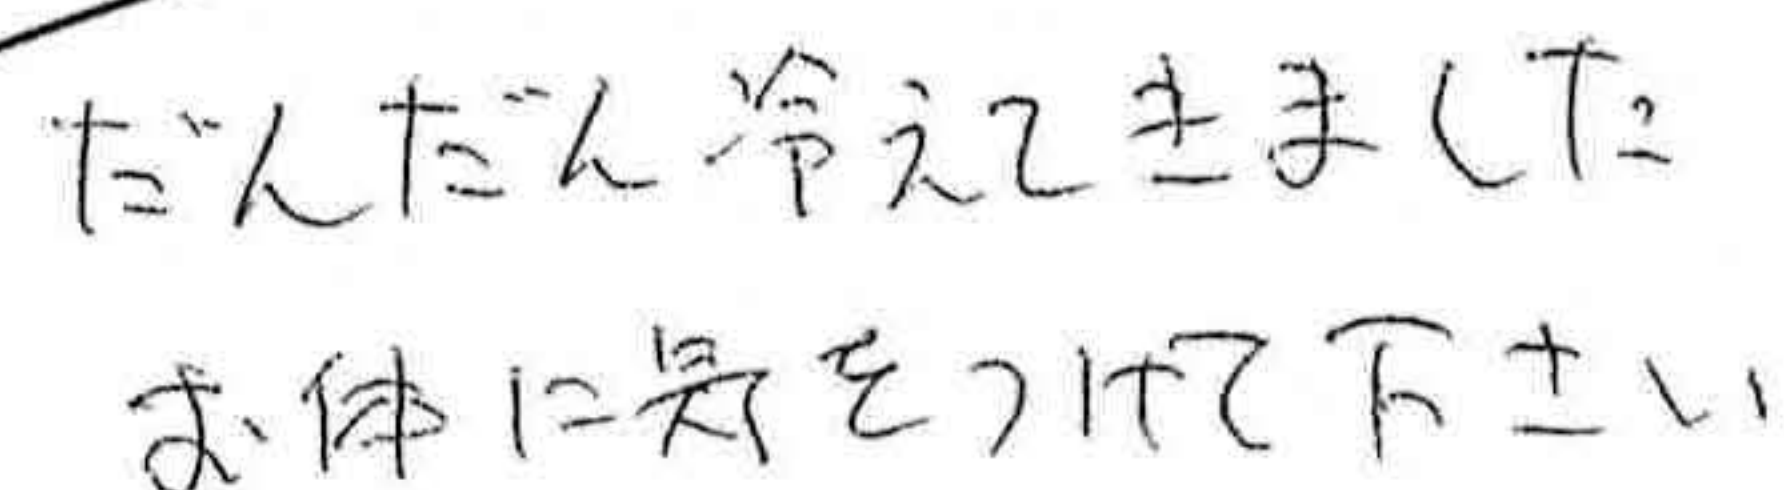 だんだん冷えてきました
お体に気をつけて下さい